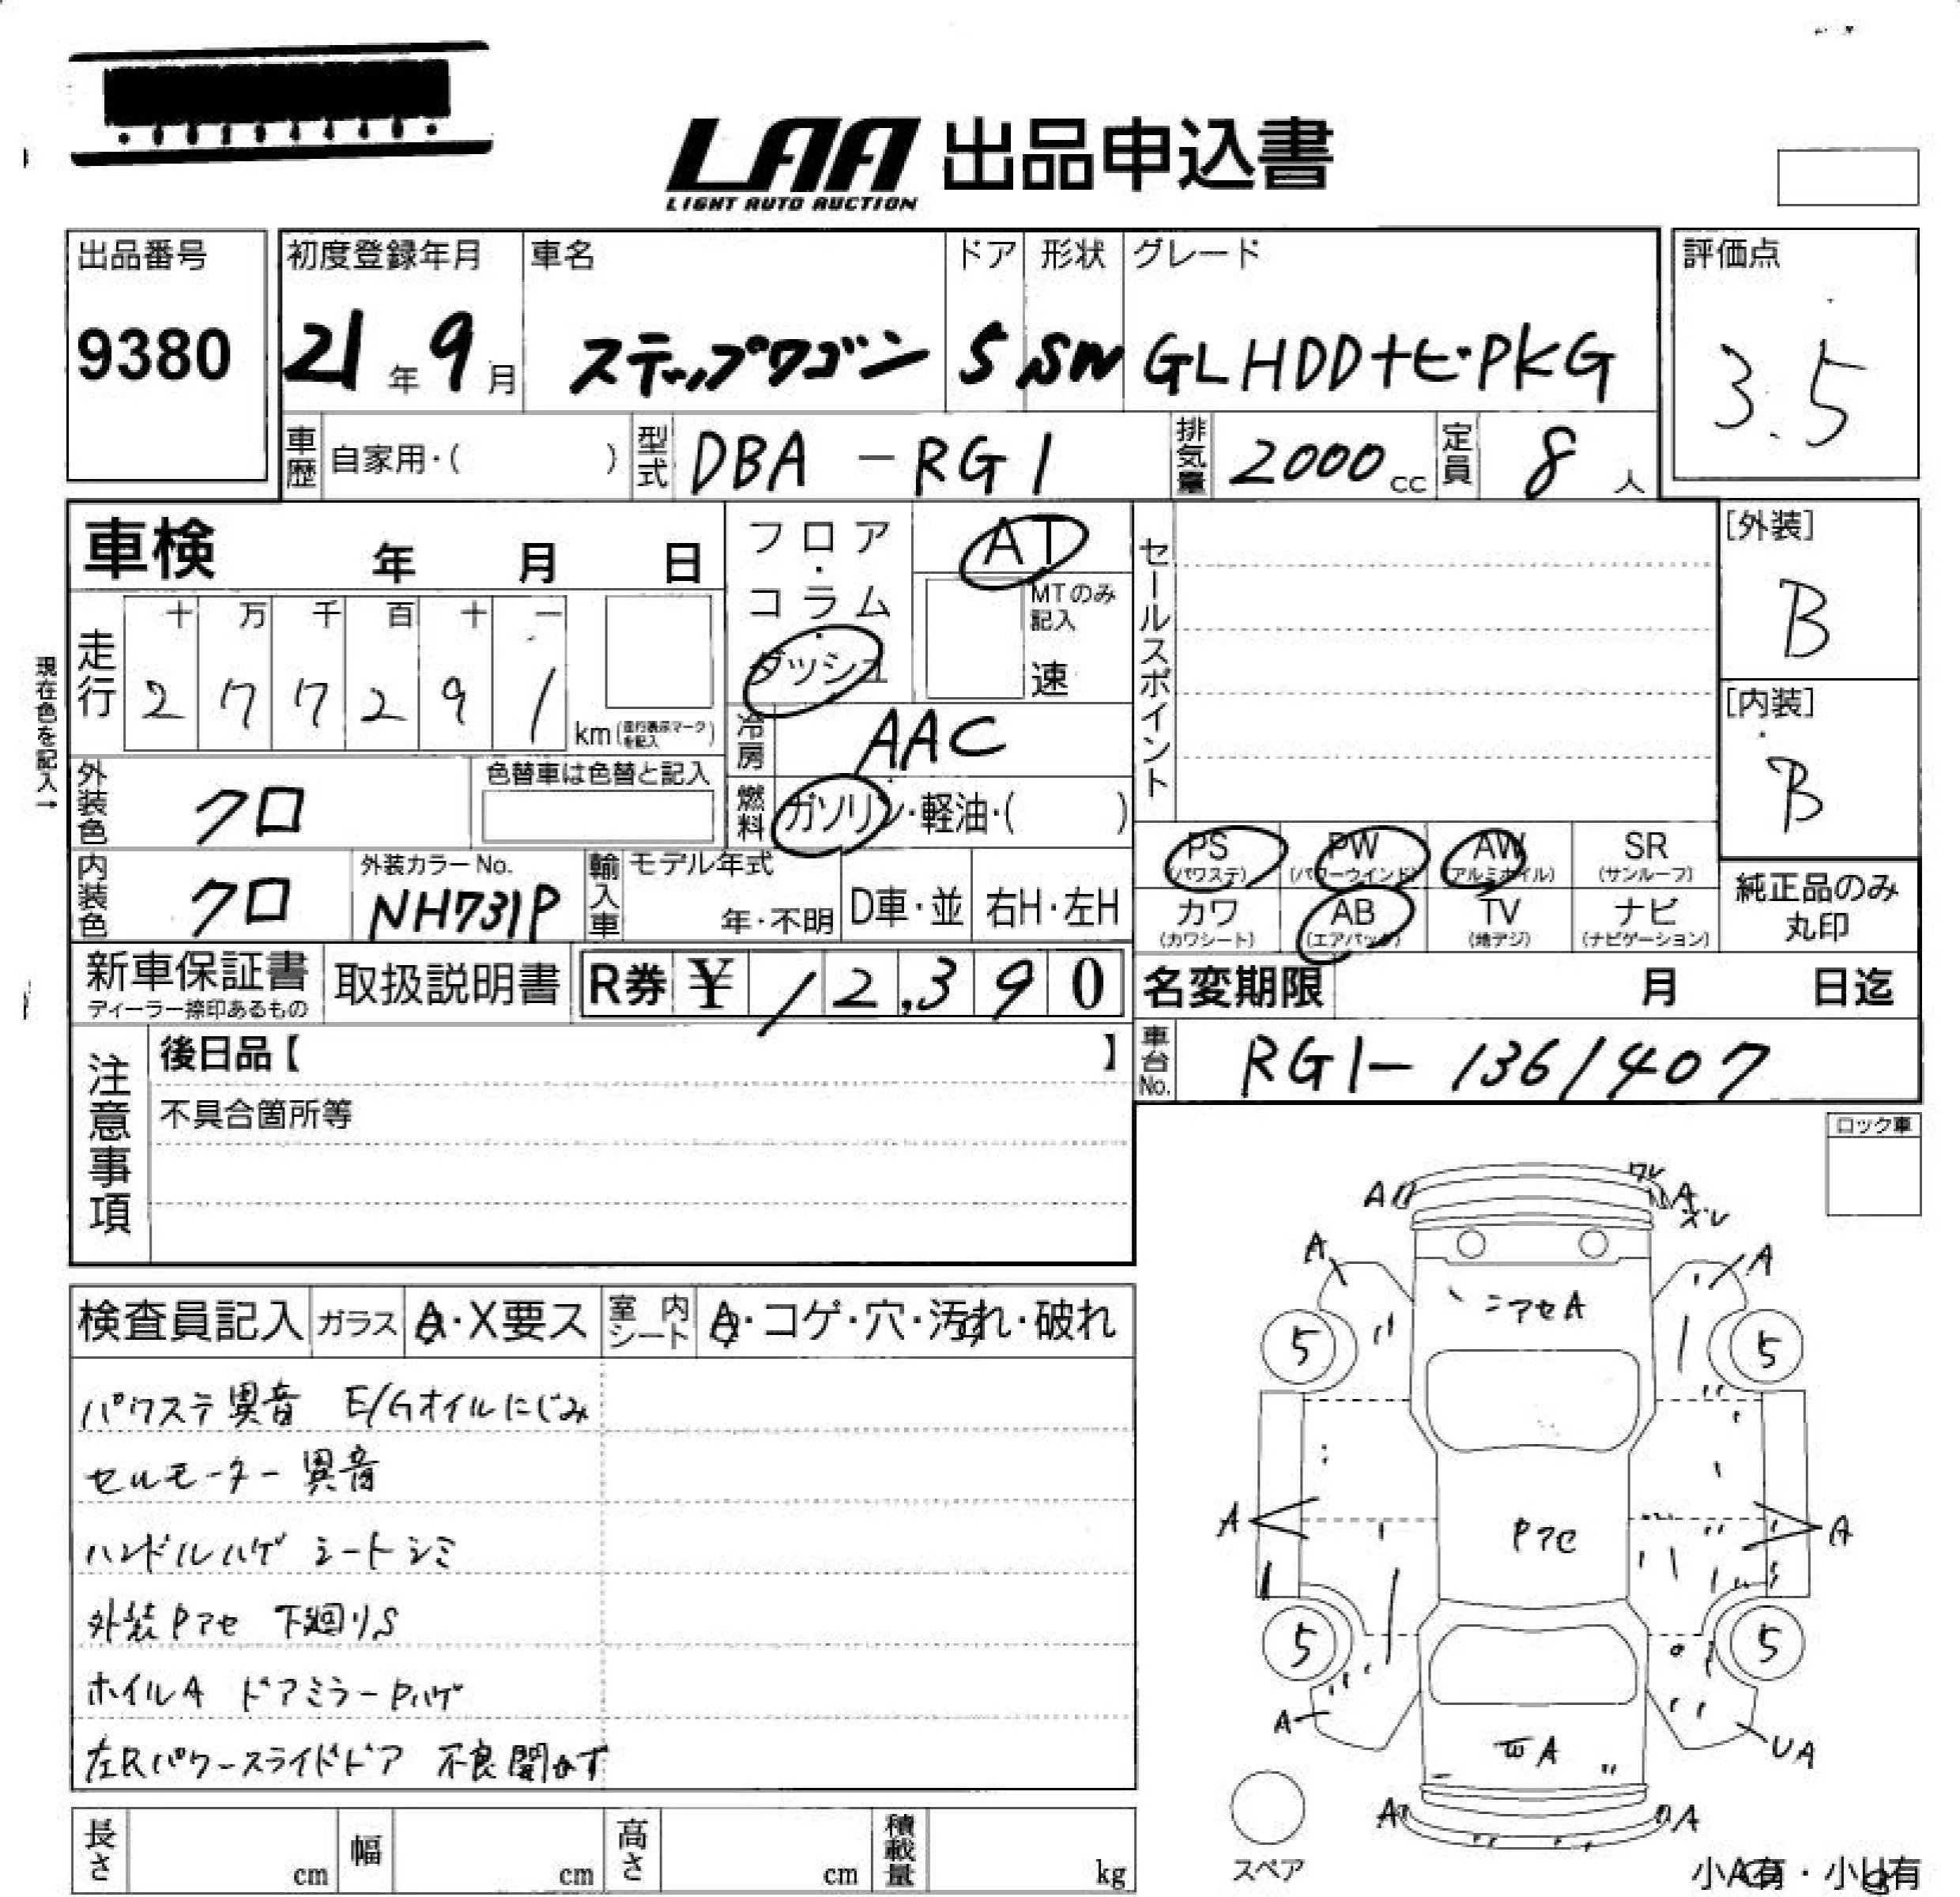 LAA 出品申込書
LIGHT AUTO AUCTION
出品番号
9380
初度登録年月
21年9月
車名
ステップワゴン
ドア
5
形状
SW
グレード
GLHDDナビPKG
評価点
3.5
車歴 自家用・( )
型式 DBA-RG1
排気量 2000cc
定員 8人
車検 年 月 日
フロア・コラム・ダッシュ
AT
MTのみ記入
速
セールスポイント
[外装]
B
[内装]
B
現在色を記入→
走行 十 万 千 百 十 一
2 7 7 2 9 1 km(走行表示マークを記入)
冷房 AAC
外装色 クロ
色替車は色替と記入
燃料 ガソリン・軽油・( )
PS (パワステ)
PW (パワーウインド)
AW (アルミホイル)
SR (サンルーフ)
カワ (カワシート)
AB (エアバック)
TV (地デジ)
ナビ (ナビゲーション)
純正品のみ丸印
内装色 クロ
外装カラーNo.
NH731P
輸入車 モデル年式
年・不明
D車・並 右H・左H
新車保証書
ディーラー捺印あるもの
取扱説明書
R券 ¥ 12,390
名変期限 月 日迄
車台No. RG1-1361407
注意事項
後日品【 】
不具合箇所等
ロック車
検査員記入 ガラス A・X要ス 室内シート A・コゲ・穴・汚れ・破れ
パワステ異音 E/Gオイルにじみ
セルモーター異音
ハンドルハゲ シートシミ
外装Pアセ 下廻りS
ホイルA ドアミラーPハゲ
左Rパワースライドドア 不良開かず
A
ワレ
A
ズレ
A
A
ニアセA
5
5
A
Pアセ
A
5
5
A
UA
A
A
A
スペア
長さ cm 幅 cm 高さ cm 積載量 kg
小A有・小U有